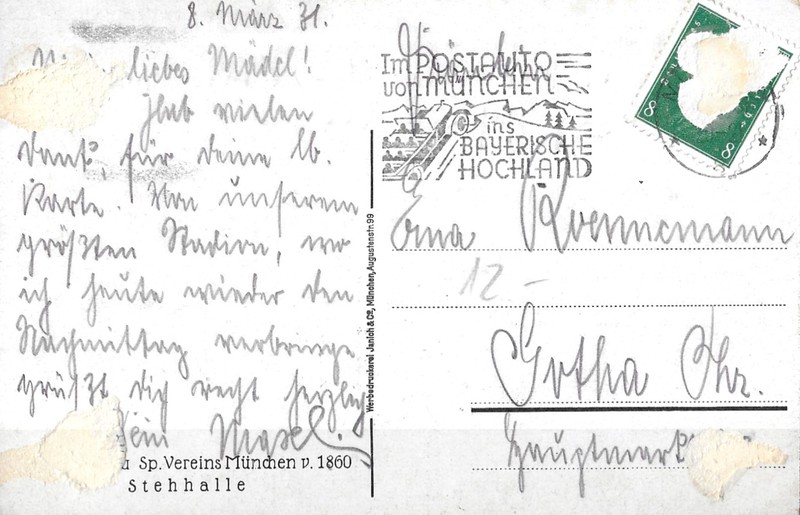 8. März 31.
liebes Mädel!
Hab vielen
Dank, für deine lb.
Karte. Von unserem
größten Stadion, wo
ich heute wieder den
Nachmittag verbringe
grüßt dich recht herzlich
Dein
Sp. Vereins München v. 1860
Stehhalle
Werbedruckerei Janich & Co, München, Augustenstr. 99
Fräulein
Im POSTAUTO
von MÜNCHEN
ins
BAYERISCHE
HOCHLAND
8
8
Erna Roennemann
12 -
Gotha Thr.
Hauptmarkt